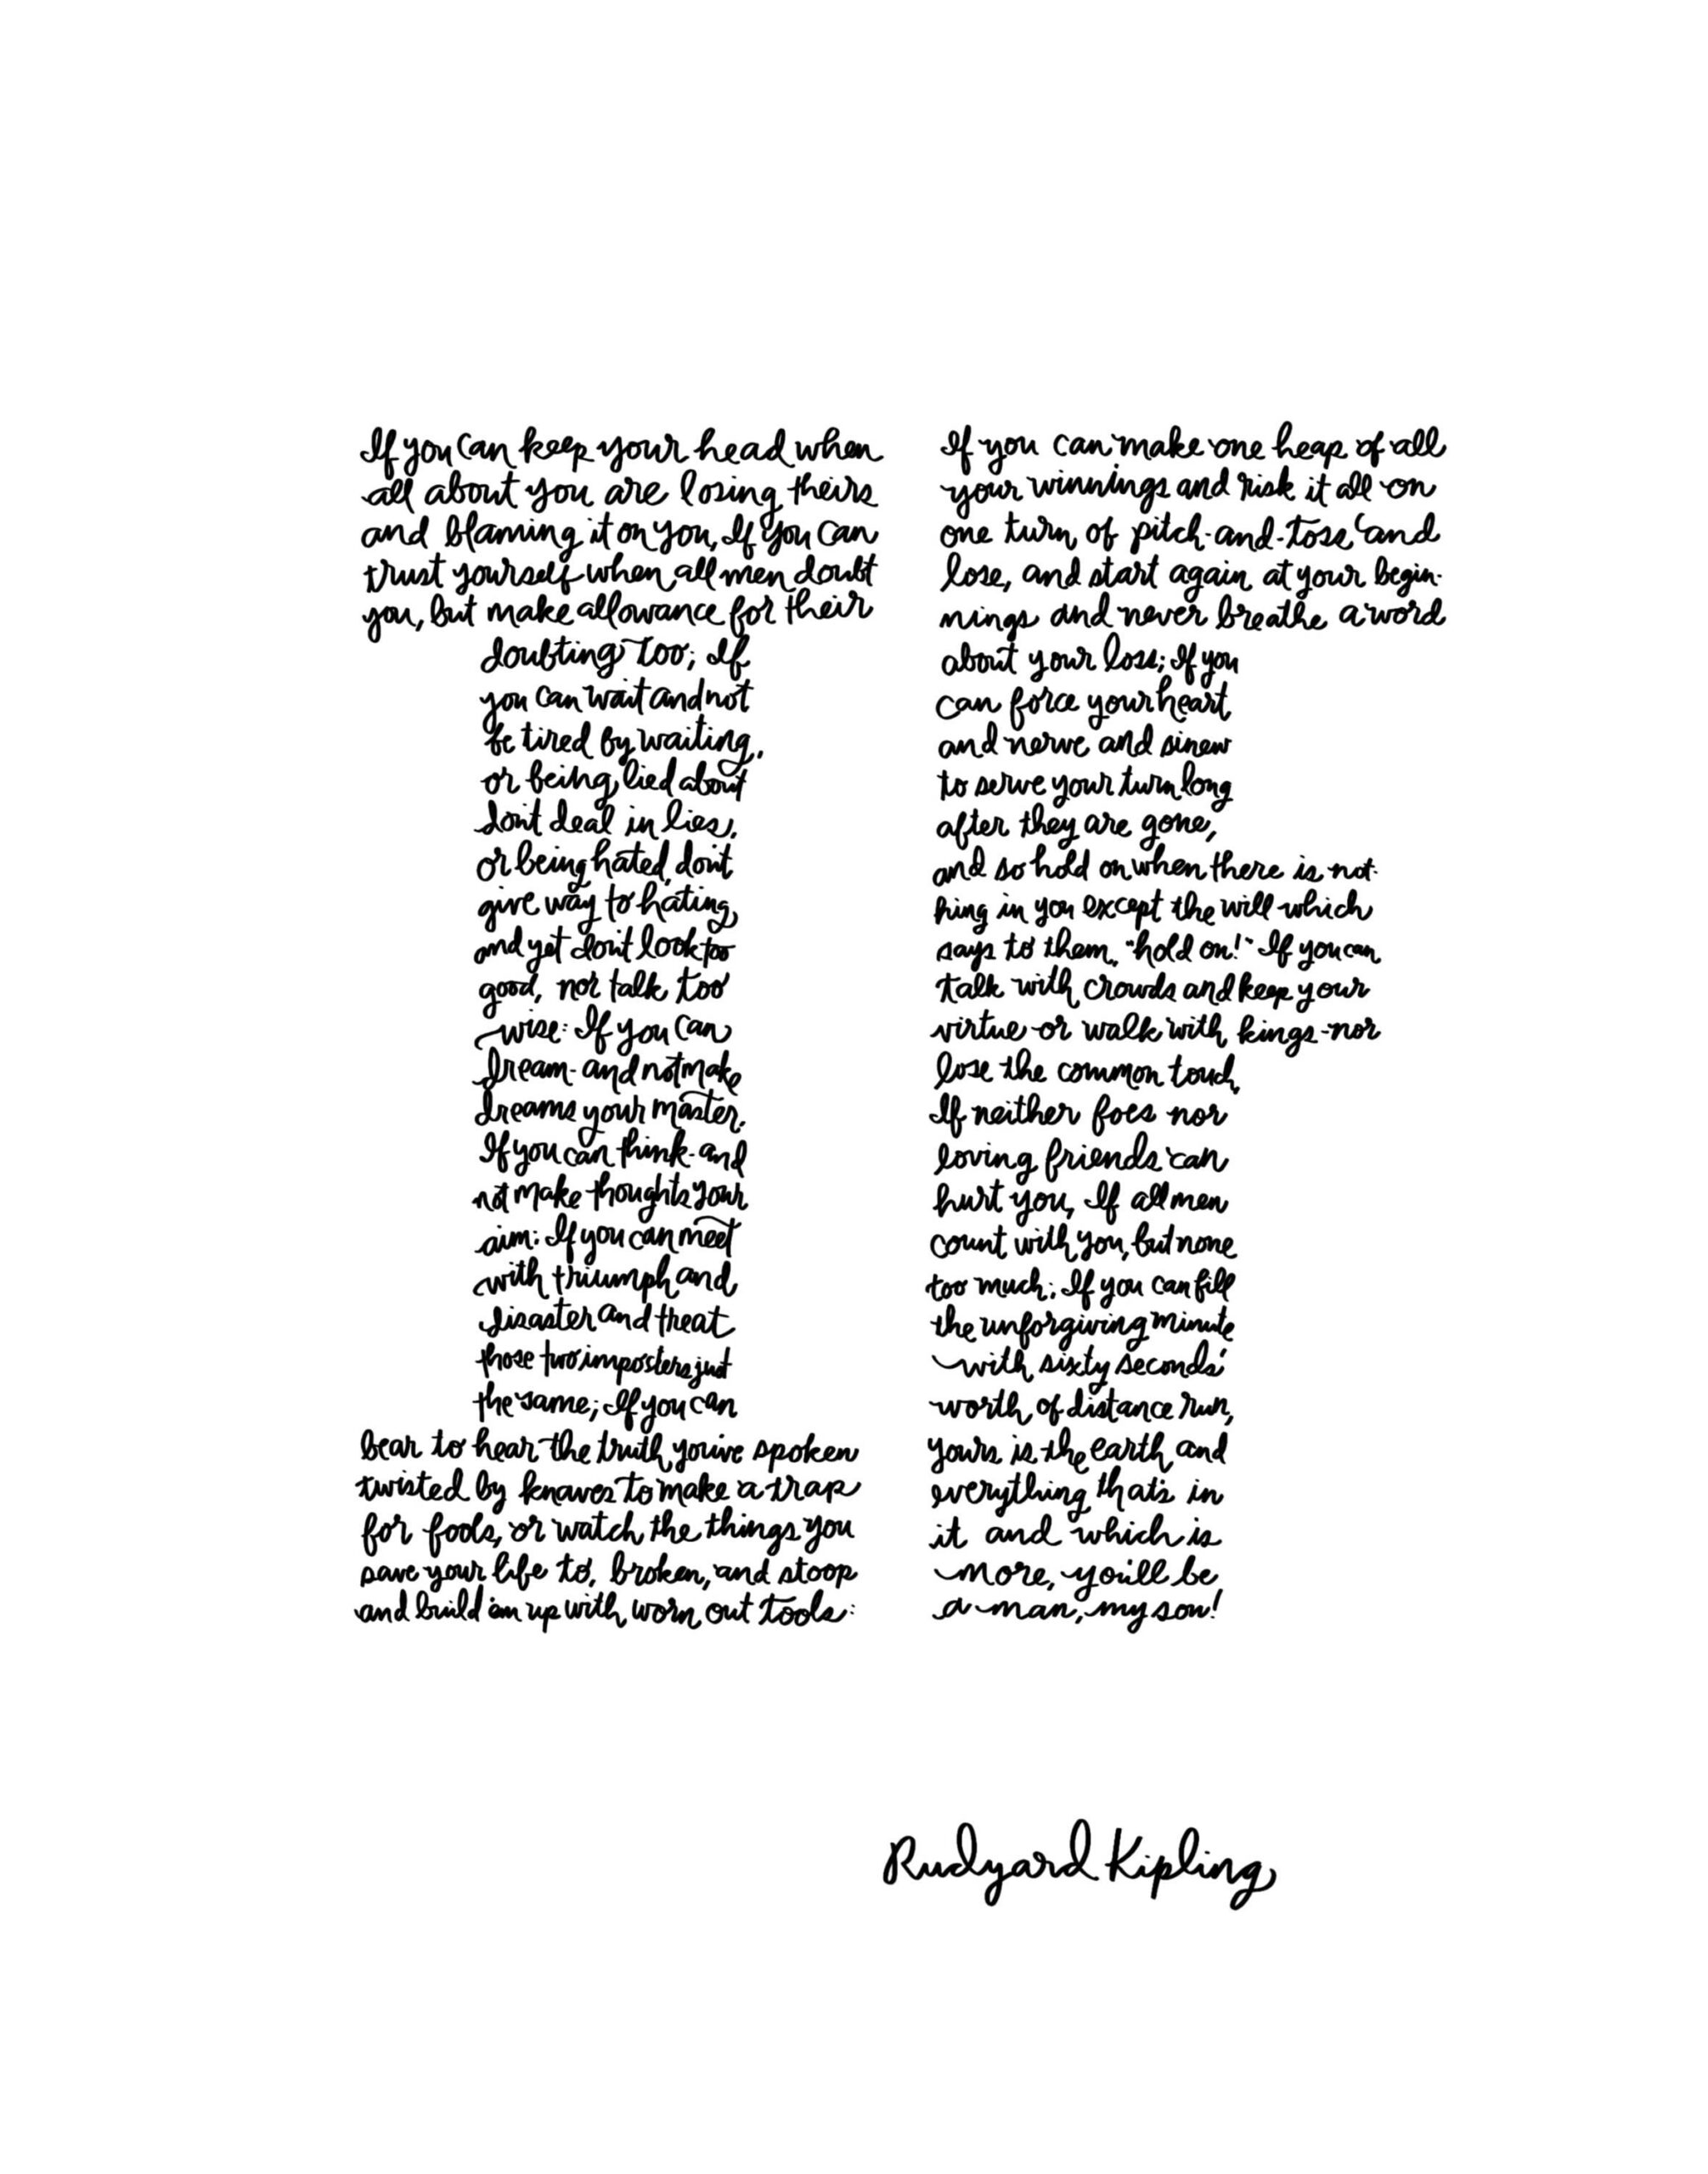 If you can keep your head when
all about you are losing theirs
and blaming it on you, If you can
trust yourself when all men doubt
you, but make allowance for their
doubting too; If
you can wait and not
be tired by waiting,
or being lied about
don't deal in lies,
or being hated, don't
give way to hating,
and yet don't look too
good, nor talk too
wise: If you can
dream- and not make
dreams your master,
If you can think- and
not make thoughts your
aim; If you can meet
with triumph and
disaster and treat
those two imposters just
the same; If you can
bear to hear the truth you've spoken
twisted by knaves to make a trap
for fools, or watch the things you
save your life to, broken, and stoop
and build 'em up with worn out tools:
If you can make one heap of all
your winnings and risk it all on
one turn of pitch-and-toss and
lose, and start again at your begin-
nings and never breathe a word
about your loss; If you
can force your heart
and nerve and sinew
to serve your turn long
after they are gone,
and so hold on when there is not-
hing in you except the will which
says to them, "hold on!" If you can
talk with crowds and keep your
virtue or walk with kings-nor
lose the common touch,
If neither foes nor
loving friends can
hurt you, If all men
count with you, but none
too much; If you can fill
the unforgiving minute
with sixty seconds'
worth of distance run,
yours is the earth and
everything that's in
it and which is
more, you'll be
a man, my son!
Rudyard Kipling